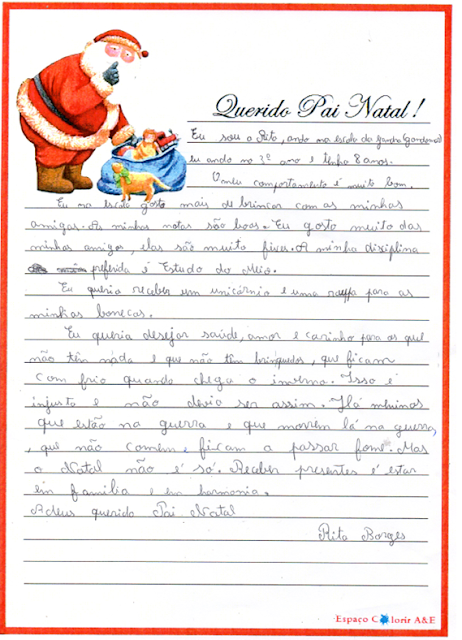 Querido Pai Natal!
Eu sou a Rita, ando na escola do
eu ando no 3º ano e tenho 8 anos.
O meu comportamento é muito bom.
Eu na escola gosto mais de brincar com as minhas
amigas. As minhas notas são boas. Eu gosto muito das
minhas amigas, elas são muito fixes. A minha disiplina
preferida é Estudo do Meio.
Eu queria receber um unicórnio e uma roupa para as
minhas bonecas.
Eu queria desejar saúde, amor e carinho para os que
não têm nada e que não têm brinquedos, que ficam
com frio quando chega o inverno. Isso é
injusto e não devia ser assim. Há meninos
que estão na guerra e que morrem lá na guerra,
, que não comem e ficam a passar fome. Mas
o Natal não é só. Receber presentes é estar
em família e em harmonia.
Adeus querido Pai Natal
Rita Borges
Espaço Colorir A&E